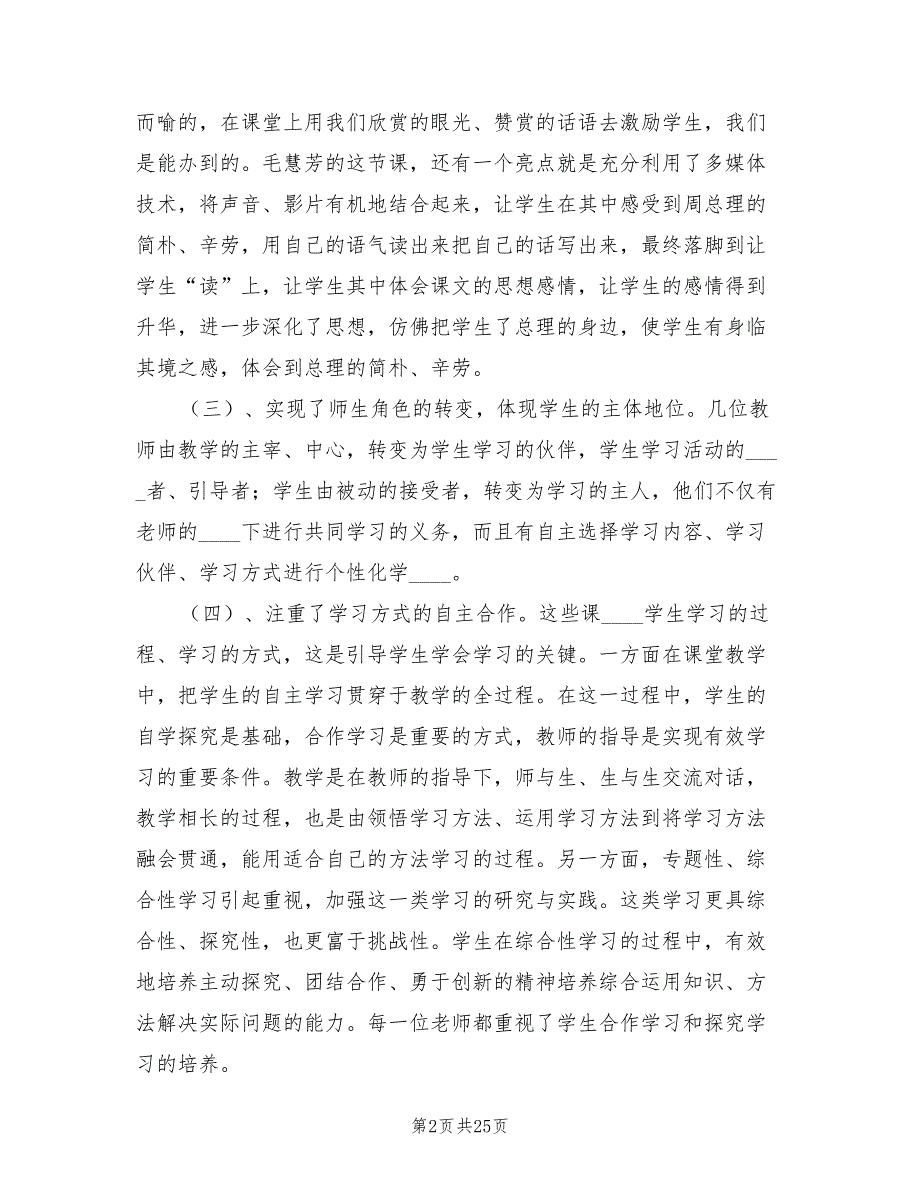 而喻的，在课堂上用我们欣赏的眼光、赞赏的话语去激励学生，我们
是能办到的。毛慧芳的这节课，还有一个亮点就是充分利用了多媒体
技术，将声音、影片有机地结合起来，让学生在其中感受到周总理的
简朴、辛劳，用自己的语气读出来把自己的话写出来，最终落脚到让
学生“读”上，让学生其中体会课文的思想感情，让学生的感情得到
升华，进一步深化了思想，仿佛把学生了总理的身边，使学生有身临
其境之感，体会到总理的简朴、辛劳。
（三）、实现了师生角色的转变，体现学生的主体地位。几位教
师由教学的主宰、中心，转变为学生学习的伙伴，学生学习活动的___
_者、引导者；学生由被动的接受者，转变为学习的主人，他们不仅有
老师的____下进行共同学习的义务，而且有自主选择学习内容、学习
伙伴、学习方式进行个性化学____。
（四）、注重了学习方式的自主合作。这些课____学生学习的过
程、学习的方式，这是引导学生学会学习的关键。一方面在课堂教学
中，把学生的自主学习贯穿于教学的全过程。在这一过程中，学生的
自学探究是基础，合作学习是重要的方式，教师的指导是实现有效学
习的重要条件。教学是在教师的指导下，师与生、生与生交流对话，
教学相长的过程，也是由领悟学习方法、运用学习方法到将学习方法
融会贯通，能用适合自己的方法学习的过程。另一方面，专题性、综
合性学习引起重视，加强这一类学习的研究与实践。这类学习更具综
合性、探究性，也更富于挑战性。学生在综合性学习的过程中，有效
地培养主动探究、团结合作、勇于创新的精神培养综合运用知识、方
法解决实际问题的能力。每一位老师都重视了学生合作学习和探究学
习的培养。
第2页共25页